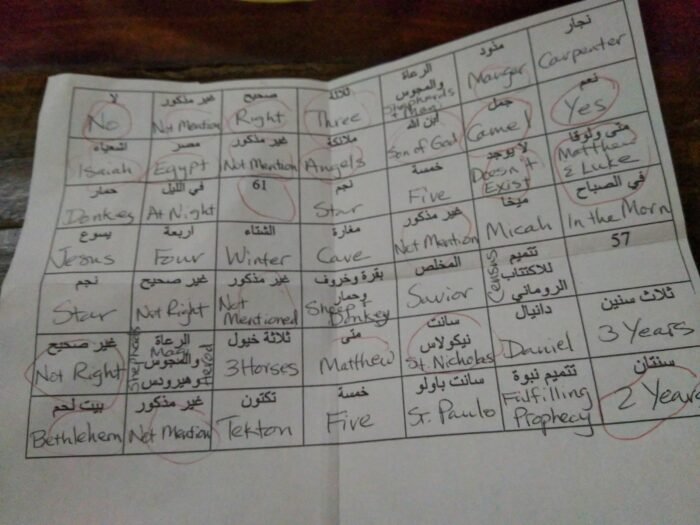 لا
No
غير مذكور
Not Mention
صحيح
Right
ثلاثة
Three
الرعاة
والمجوس
Shepherds
+ Magi
مذود
Manger
نجار
Carpenter
اشعياء
Isaiah
مصر
Egypt
غير مذكور
Not Mention
ملائكة
Angels
ابن الله
Son of God
جمل
Camel
نعم
Yes
حمار
Donkey
في الليل
At Night
61
نجم
Star
خمسة
Five
لا يوجد
Doesn't
Exist
متى ولوقا
Matthew
& Luke
يسوع
Jesus
اربعة
Four
الشتاء
Winter
مغارة
Cave
غير مذكور
Not Mention
ميخا
Micah
في الصباح
In the Morn
نجم
Star
غير صحيح
Not Right
غير مذكور
Not
Mentioned
بقرة وخروف
وحمار
Sheep
Donkey
المخلص
Savior
تتميم
للاكتتاب
الروماني
Census
57
غير صحيح
Not Right
الرعاة
والمجوس
وهيرودس
Shepherds
Magi
Herod
ثلاثة خيول
3 Horses
متى
Matthew
سانت
نيكولاس
St. Nicholas
دانيال
Daniel
ثلاث سنين
3 Years
بيت لحم
Bethlehem
غير مذكور
Not Mention
تكتون
Tekton
خمسة
Five
سانت باولو
St. Paulo
تتميم نبوة
Fulfilling
Prophecy
سنتان
2 Years